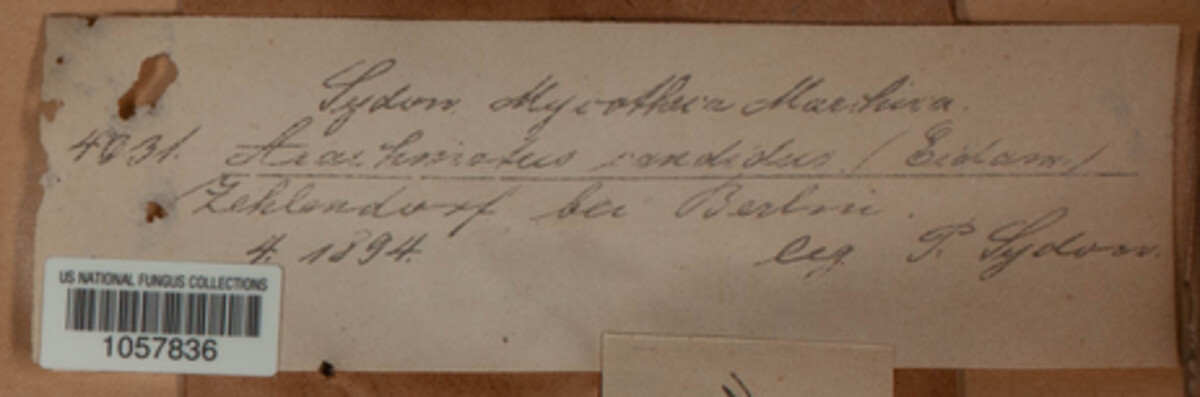 Sydow. Mycotheca Marchica.
4031. Arachniotus candidus (Eidam.)
Zehlendorf bei Berlin.
4. 1894. leg. P. Sydow.
US NATIONAL FUNGUS COLLECTIONS
1057836